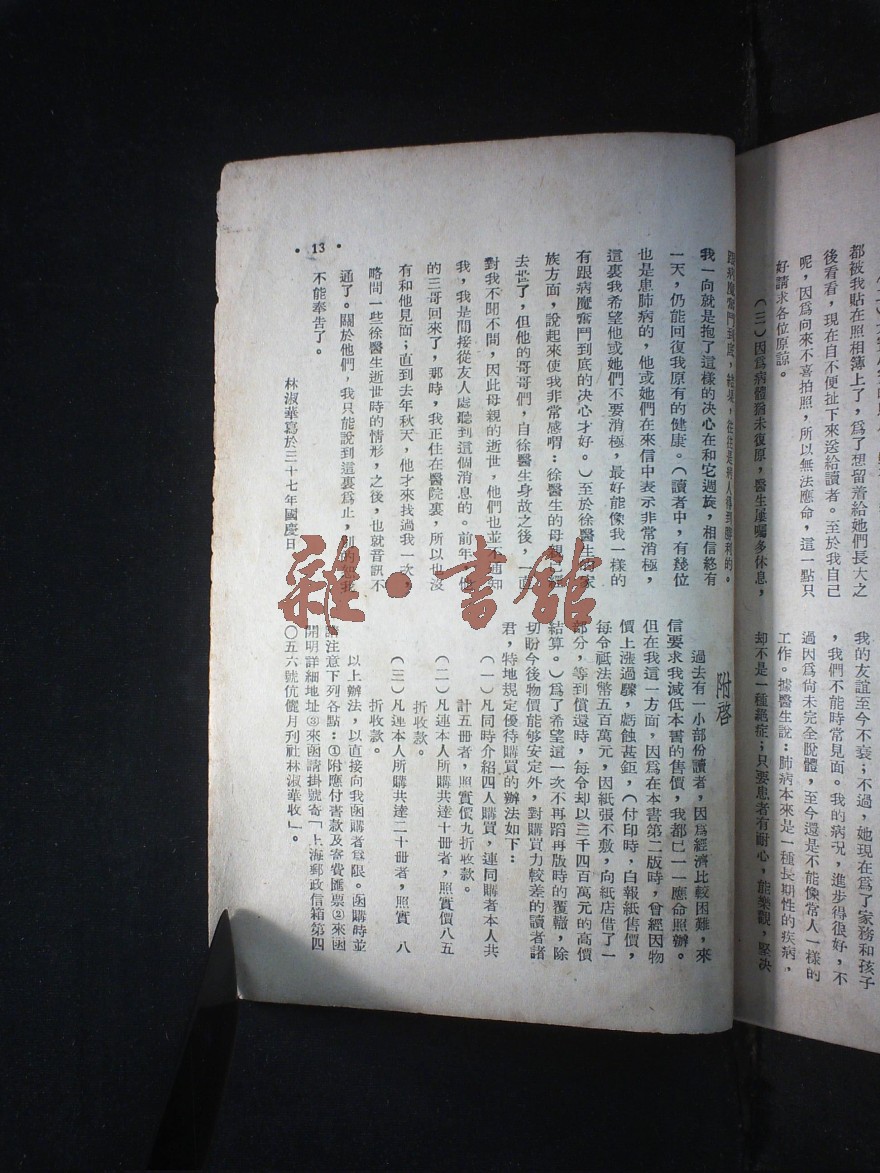 都被我貼在照相簿上了，爲了想留着給她們長大之
後看看，現在自不便扯下來送給讀者。至於我自己
呢，因爲向來不喜拍照，所以無法應命，這一點只
好請求各位原諒。
（三）因爲病體猶未復原，醫生屢囑多休息，
我的友誼至今不衰；不過，她現在爲了家務和孩子
，我們不能時常見面。我的病況，進步得很好，不
過因爲尚未完全脫體，至今還是不能像常人一樣的
工作。據醫生說：肺病本來是一種長期性的疾病，
却不是一種絕症；只要患者有耐心，能樂觀，堅决
跟病魔奮鬥到底，結果，往往是病人得到勝利的。
我一向就是抱了這樣的决心在和它週旋，相信終有
一天，仍能回復我原有的健康。（讀者中，有幾位
也是患肺病的，他或她們在來信中表示非常消極，
這裏我希望他或她們不要消極，最好能像我一樣的
有跟病魔奮鬥到底的决心才好。）至於徐醫生的家
族方面，說起來使我非常感喟：徐醫生的母親
去世了，但他的哥哥們，自徐醫生身故之後，一直
對我不聞不問，因此母親的逝世，他們也並不通知
我，我是間接從友人處聽到這個消息的。前年，他
的三哥回來了，那時，我正住在醫院裏，所以也沒
有和他見面；直到去年秋天，他才來找過我一次，
略問一些徐醫生逝世時的情形，之後，也就音訊不
通了。關於他們，我只能說到這裏爲止，別的恕我
不能奉告了。
林淑華寫於三十七年國慶日
附啓
過去有一小部份讀者，因爲經濟比較困難，來
信要求我減低本書的售價，我都已一一應命照辦。
但在我這一方面，因爲在本書第二版時，曾經因物
價上漲過驟，虧蝕甚鉅，（付印時，白報紙售價，
每令祗法幣五百萬元，因紙張不敷，向紙店借了一
部分，等到償還時，每令却以三千四百萬元的高價
結算。）爲了希望這一次不再蹈再版時的覆轍，除
切盼今後物價能够安定外，對購買力較差的讀者諸
君，特地規定優待購買的辦法如下：
（一）凡同時介紹四人購買，連同購者本人共
計五冊者，照實價九折收款。
（二）凡連本人所購共達十冊者，照實價八五
折收款。
（三）凡連本人所購共達二十冊者，照實　八
折收款。
以上辦法，以直接向我函購者爲限。函購時並
請注意下列各點：①附應付書款及寄費匯票②來函
開明詳細地址③來函請掛號寄「上海郵政信箱第四
〇五六號伉儷月刊社林淑華收」。
• 13 •
雜·書館